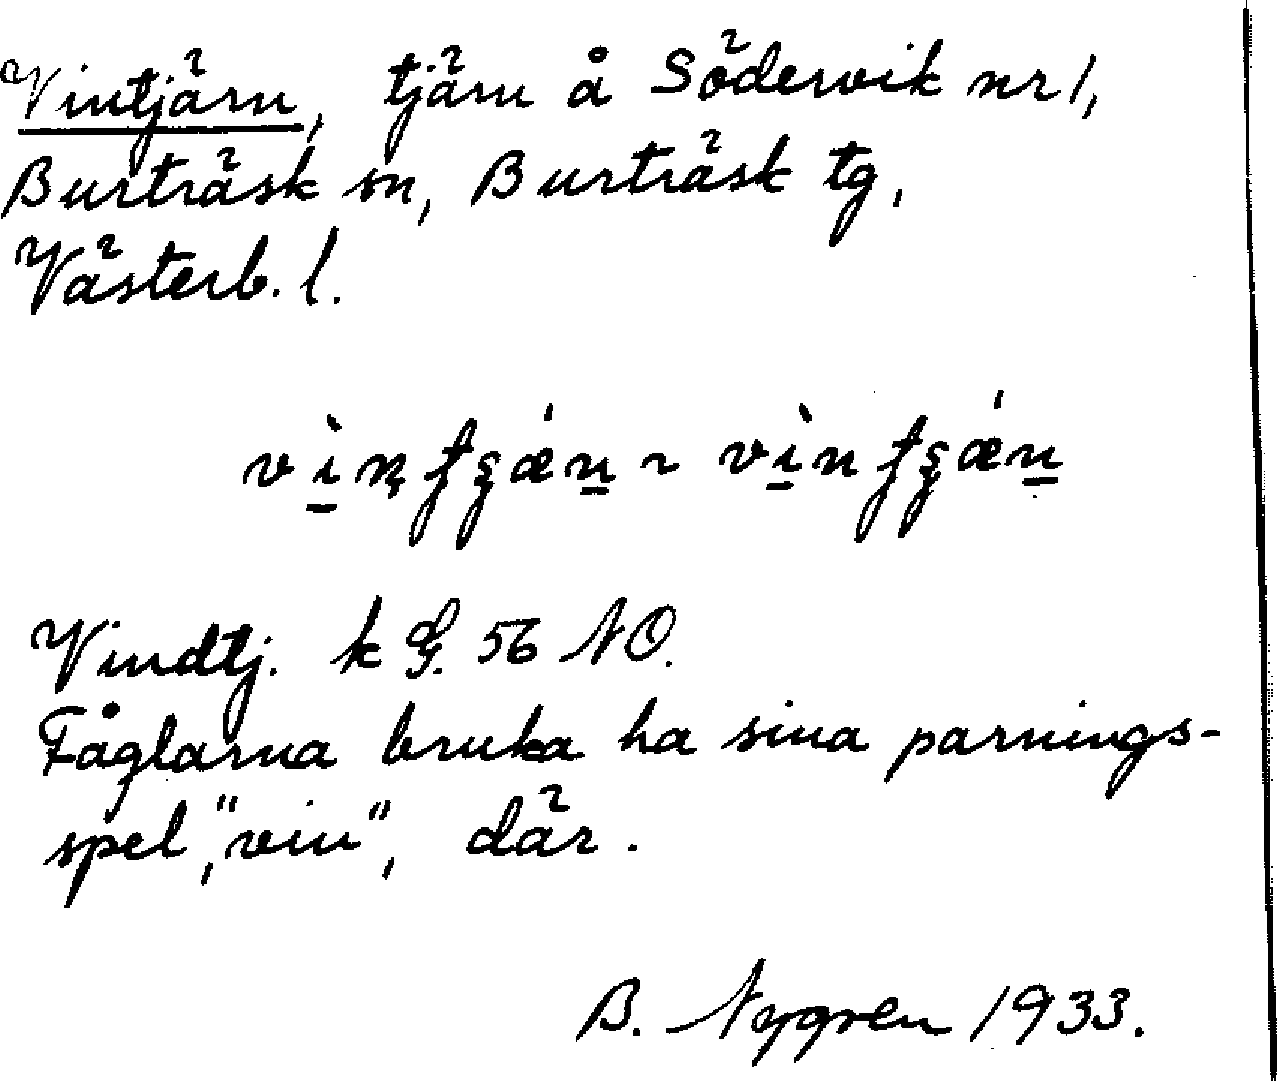 Vintjärn, tjärn å Södervik nr 1,
Burträsk sn, Burträsk tg,
Västerb. l.
Vindtj. k G. 56 NO.
Fåglarna bruka ha sina parnings-
spel, "vin", där.
B. Nygren 1933.